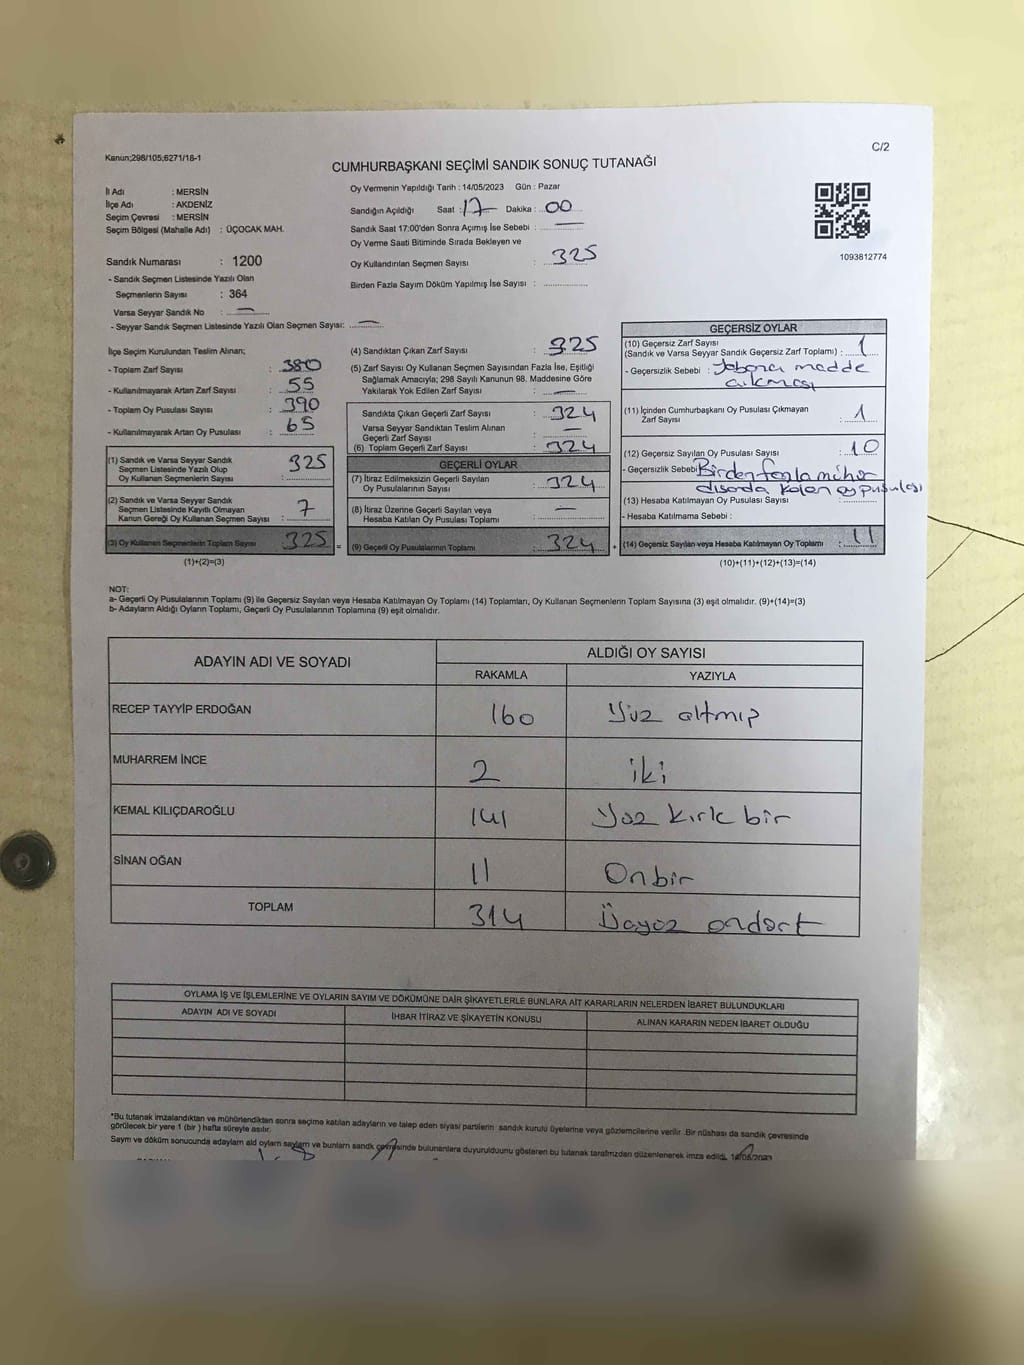 Kanun;298/105;6271/18-1
C/2
CUMHURBAŞKANI SEÇİMİ SANDIK SONUÇ TUTANAĞI
İl Adı : MERSİN
İlçe Adı : AKDENİZ
Seçim Çevresi : MERSİN
Seçim Bölgesi (Mahalle Adı) : ÜÇOCAK MAH.
Sandık Numarası : 1200
- Sandık Seçmen Listesinde Yazılı Olan
Seçmenlerin Sayısı : 364
Varsa Seyyar Sandık No : —
- Seyyar Sandık Seçmen Listesinde Yazılı Olan Seçmen Sayısı: —
Oy Vermenin Yapıldığı Tarih : 14/05/2023 Gün : Pazar
Sandığın Açıldığı Saat : 17 Dakika : 00
Sandık Saat 17:00'den Sonra Açımış İse Sebebi : —
Oy Verme Saati Bitiminde Sırada Bekleyen ve
Oy Kullandırılan Seçmen Sayısı : 325
Birden Fazla Sayım Döküm Yapılmış İse Sayısı :
1093812774
İlçe Seçim Kurulundan Teslim Alınan;
- Toplam Zarf Sayısı : 380
- Kullanılmayarak Artan Zarf Sayısı : 55
- Toplam Oy Pusulası Sayısı : 390
- Kullanılmayarak Artan Oy Pusulası : 65
(1) Sandık ve Varsa Seyyar Sandık
Seçmen Listesinde Yazılı Olup
Oy Kullanan Seçmenlerin Sayısı : 325
(2) Sandık ve Varsa Seyyar Sandık
Seçmen Listesinde Kayıtlı Olmayan
Kanun Gereği Oy Kullanan Seçmen Sayısı : 7
(3) Oy Kullanan Seçmenlerin Toplam Sayısı 325 =
(1)+(2)=(3)
(4) Sandıktan Çıkan Zarf Sayısı : 325
(5) Zarf Sayısı Oy Kullanan Seçmen Sayısından Fazla İse, Eşitliği
Sağlamak Amacıyla; 298 Sayılı Kanunun 98. Maddesine Göre
Yakılarak Yok Edilen Zarf Sayısı : —
Sandıkta Çıkan Geçerli Zarf Sayısı : 324
Varsa Seyyar Sandıktan Teslim Alınan
Geçerli Zarf Sayısı : —
(6) Toplam Geçerli Zarf Sayısı : 324
GEÇERLİ OYLAR
(7) İtiraz Edilmeksizin Geçerli Sayılan
Oy Pusulasının Sayısı : 324
(8) İtiraz Üzerine Geçerli Sayılan veya
Hesaba Katılan Oy Pusulası Toplamı : —
(9) Geçerli Oy Pusulalarının Toplamı : 324 +
GEÇERSİZ OYLAR
(10) Geçersiz Zarf Sayısı
(Sandık ve Varsa Seyyar Sandık Geçersiz Zarf Toplamı) : 1
- Geçersizlik Sebebi : Yabancı madde
çıkması
(11) İçinden Cumhurbaşkanı Oy Pusulası Çıkmayan
Zarf Sayısı : 1
(12) Geçersiz Sayılan Oy Pusulası Sayısı : 10
- Geçersizlik Sebebi Birden fazla mühür
dışarda kalan oy pusulası
(13) Hesaba Katılmayan Oy Pusulası Sayısı :
- Hesaba Katılmama Sebebi :
(14) Geçersiz Sayılan veya Hesaba Katılmayan Oy Toplamı : 11
(10)+(11)+(12)+(13)=(14)
NOT:
a- Geçerli Oy Pusulalarının Toplamı (9) ile Geçersiz Sayılan veya Hesaba Katılmayan Oy Toplamı (14) Toplamları, Oy Kullanan Seçmenlerin Toplam Sayısına (3) eşit olmalıdır. (9)+(14)=(3)
b- Adayların Aldığı Oyların Toplamı, Geçerli Oy Pusulalarının Toplamına (9) eşit olmalıdır.
ADAYIN ADI VE SOYADI ALDIĞI OY SAYISI
RAKAMLA YAZIYLA
RECEP TAYYİP ERDOĞAN 160 Yüz altmış
MUHARREM İNCE 2 iki
KEMAL KILIÇDAROĞLU 141 Yüz kırk bir
SİNAN OĞAN 11 Onbir
TOPLAM 314 Üçyüz ondört
OYLAMA İŞ VE İŞLEMLERİNE VE OYLARIN SAYIM VE DÖKÜMÜNE DAİR ŞİKAYETLERLE BUNLARA AİT KARARLARIN NELERDEN İBARET BULUNDUKLARI
ADAYIN ADI VE SOYADI İHBAR İTİRAZ VE ŞİKAYETİN KONUSU ALINAN KARARIN NEDEN İBARET OLDUĞU
*Bu tutanak imzalandıktan ve mühürlendikten sonra seçime katılan adayların ve talep eden siyasi partilerin sandık kurulu üyelerine veya gözlemcilerine verilir. Bir nüshası da sandık çevresinde
görülecek bir yere 1 (bir ) hafta süreyle asılır.
Sayım ve döküm sonucunda adayların aldı oyların sayları ve bunların sandık çevresinde bulunanlara duyurulduunu gösteren bu tutanak tarafmzdan düzenlenerek imza edildi. 14/05/2023